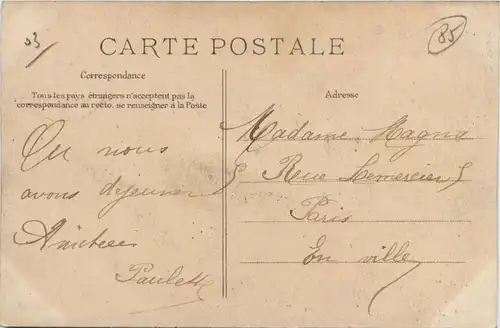 03
85
CARTE POSTALE
Correspondance
Tous les pays étrangers n'acceptent pas la
correspondance au recto. se renseigner à la Poste
Ou nous
avons dejeuner
Amitiees
Paulette
Adresse
Madame Magna
5 Rue Lemercier 5
Paris
En ville